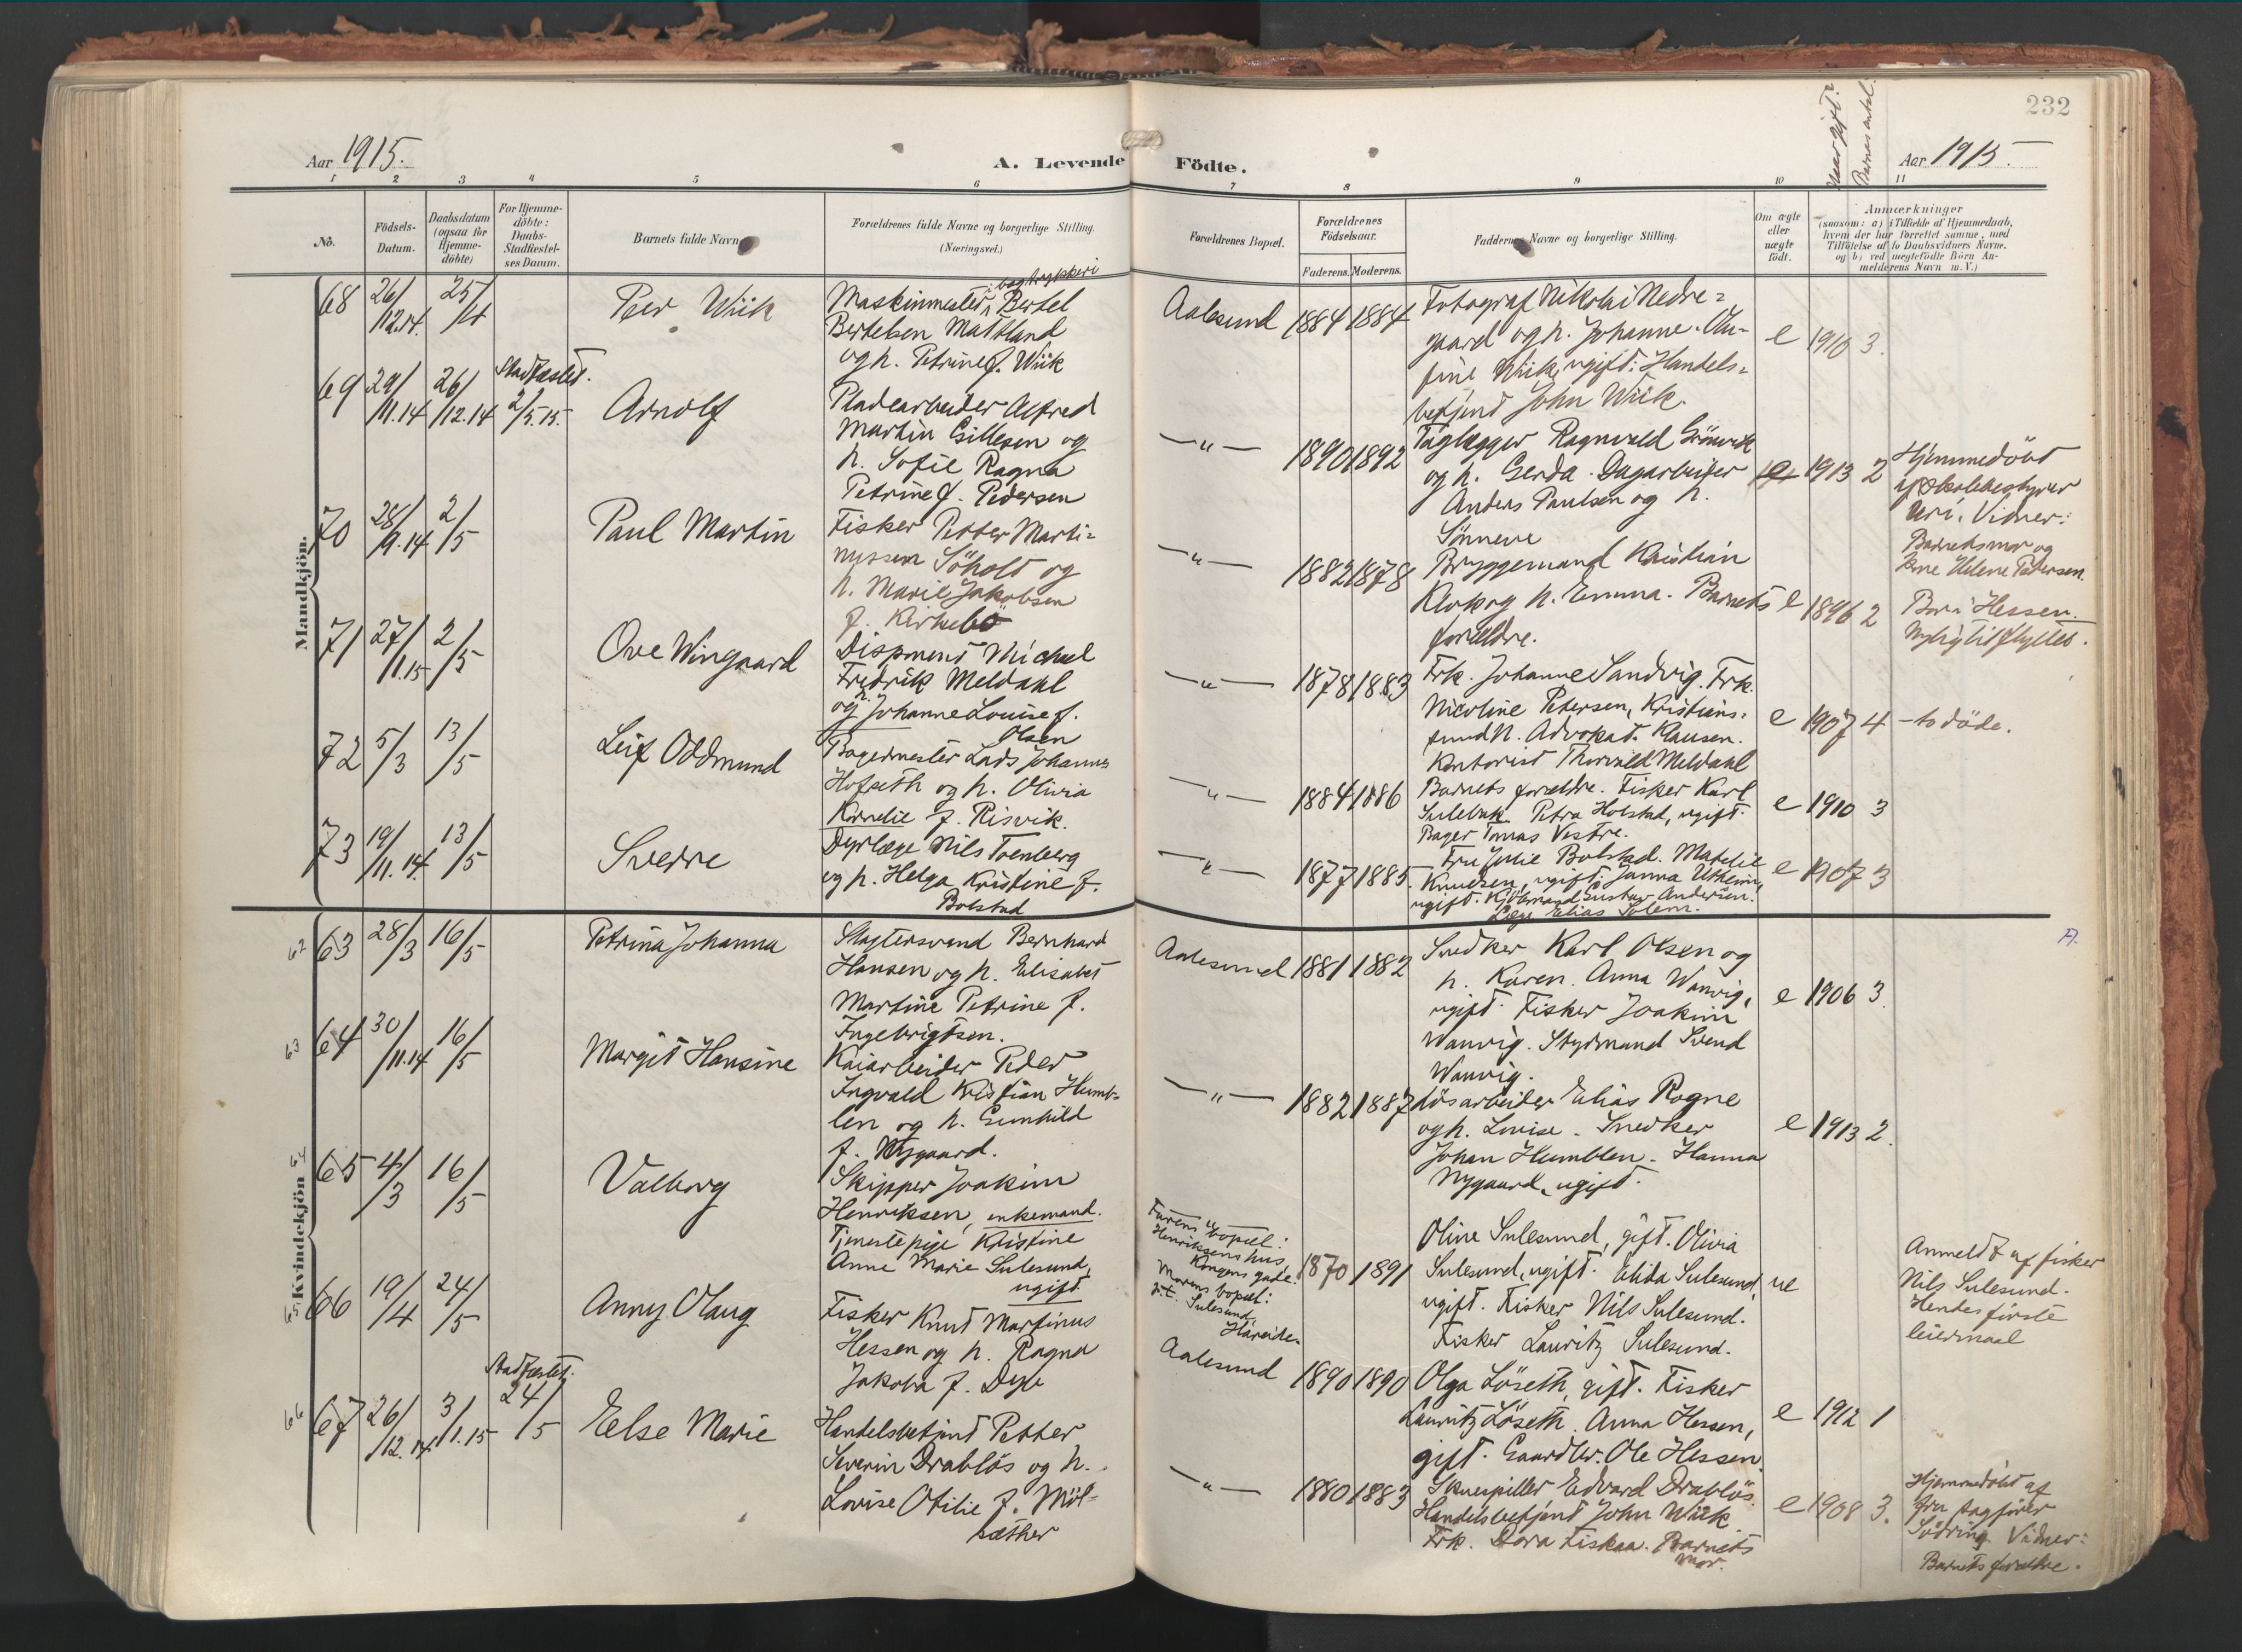 232
Aar 1915.
A. Levende Födte.
Aar 1915.
Naar gift?
Barnes antal.
1 2 3 4 5 6 7 8 9 10 11
No.
Födsels-
Datum.
Daabsdatum
(ogsaa for
Hjemme-
döbte)
For Hjemme-
döbte:
Daabs-
Stadfæstel-
ses Datum.
Barnets fulde Navn
Forældrenes fulde Navne og borgerlige Stilling.
(Næringsvei.)
Forældrenes Bopæl.
Forældrenes
Födselsaar.
Faderens. Moderens.
Faddernes Navne og borgerlige Stilling.
Om ægte
eller
uægte
født.
Anmærkninger
(saasom: a) i Tilfælde af Hjemmedaab,
hvem der har forrettet samme, med
Tilföielse af to Daabsvidners Navne.
og b) ved uegtefödte Börn An-
melderens Navn m. V.)
Mandkjön.
68 26/12.14. 25/4 Peer Wiik
i bogtrykkeri
Maskinmester Bertel
Bertelsen Maitland
og h. Petrine f. Wiik
Aalesund 1884 1884
Fotograf Nikolai Nedre=
gaard og h. Johanne.
fine Wiik, ugift. Handels=
betjent John Wiik.
e 1910 3.
69 29/11.14 26/12.14 Stadfæstet. 2/5.15. Arnolf
Pladearbeider Alfred
Martin Gillesen og
h. Sofie Ragna
Petrine f. Pedersen
—"— 1890 1892
Taglægger Ragnvald Grönvik
og h. Gerda. Dagarbeider
Anders Paulsen og h.
Sönneve
1913 2
Hjemmedöbt
af skolebestyrer
Uri. Vidner:
Barnets mor og
kone Helene Pedersen.
70 28/9.14 2/5 Paul Martin
Fisker Petter Marti=
nussen Söholt og
h. Marie Jakobsen
f. Kirkebö
—"— 1882 1878
Bryggemand Kristian
Klok og h. Emma. Barnets
forældre.
e 1896 2
Bor i Hessen.
Nylig tilflyttet.
71 27/1.15 2/5 Ove Wingaard
Disponent Michael
Fredrik Meldahl
og h. Johanne Louise f.
Olsen
—"— 1878 1883
Frk. Johanne Sandvig. Frk.
Nicoline Petersen, Kristians=
sund N. Advokat Klausen.
Kontorist Thorvald Meldahl
e 1907 4 - to döde.
72 5/3 13/5 Leif Oddmund
Bagermester Lars Johannes
Hofseth og h. Olivia
Kornelie f. Risvik.
—"— 1884 1886
Barnets forældre. Fisker Karl
Sulebak. Petra Holstad, ugift.
Bager Tomas Vestre.
e 1910 3
73 19/11.14. 13/5 Sverre
Dyrlæge Nils Toenberg
og h. Helga Kristine f.
Bolstad
—"— 1877 1885.
Fru Julie Bolstad. Matelie
Knudsen, ugift. Janna Utheim,
ugift. Kjöbmand Gustav Andersen.
Læge Elias Solem.
e 1907 3
Kvindekjön
62 63 28/3 16/5 Petrina Johanna
Slagtersvend Bernhard
Hansen og h. Elisabet
Martine Petrine f.
Ingebrigtsen.
Aalesund 1881 1882
Snedker Karl Olsen og
h. Karen. Anna Wanvig,
ugift. Fisker Joakim
Wanvig. Styrmand Svend
Wanvig.
e 1906 3.
63 64 30/11.14 16/5 Margit Hansine
Kaiarbeider Peder
Ingvald Kristian Humb-
len og h. Gunhild
f. Nygaard.
—"— 1882 1887
Lösarbeider Elias Rogne
og h. Louise. Snedker
Johan Humblen. Hanna
Nygaard, ugift.
e 1913 2.
64 65 4/3 16/5 Valborg
Skipper Joakim
Henriksen, enkemand.
Tjenestepige Kristine
Anne Marie Sulesund,
ugift
Farens bopæl:
Henriksens hus
Kongens gade.
Morens bopæl:
Sulesund,
Hareide.
1870 1891
Oline Sulesund, gift. Olivia
Sulesund, ugift. Elida Sulesund,
ugift. Fisker Nils Sulesund.
Fisker Lauritz Sulesund.
ue
Anmeldt af fisker
Nils Sulesund.
Hendes förste
leiermaal
65 66 19/4 24/5 Anny Olaug
Fisker Knut Martinus
Hessen og h. Ragna
Jakoba f. Dyb
Aalesund 1890 1890
Olga Löseth, gift. Fisker
Lauritz Löseth. Anna Hessen,
gift. Gaardbr. Ole Hessen.
e 1912 1
66 67 26/12.14 3/1.15 Stadfæstet. 24/5 Else Marie
Handelsbetjent Petter
Severin Drablös og h.
Lovise Otilie f. Möl-
sæther
—"— 1880 1883
Skuespiller Edvard Drablös.
Handelsbetjent John Wiik.
Frk. Dora Fiskaa. Barnets
mor.
e 1908 3.
Hjemmedöbt af
fru sagförer
Södring. Vidner:
Barnets forældre.